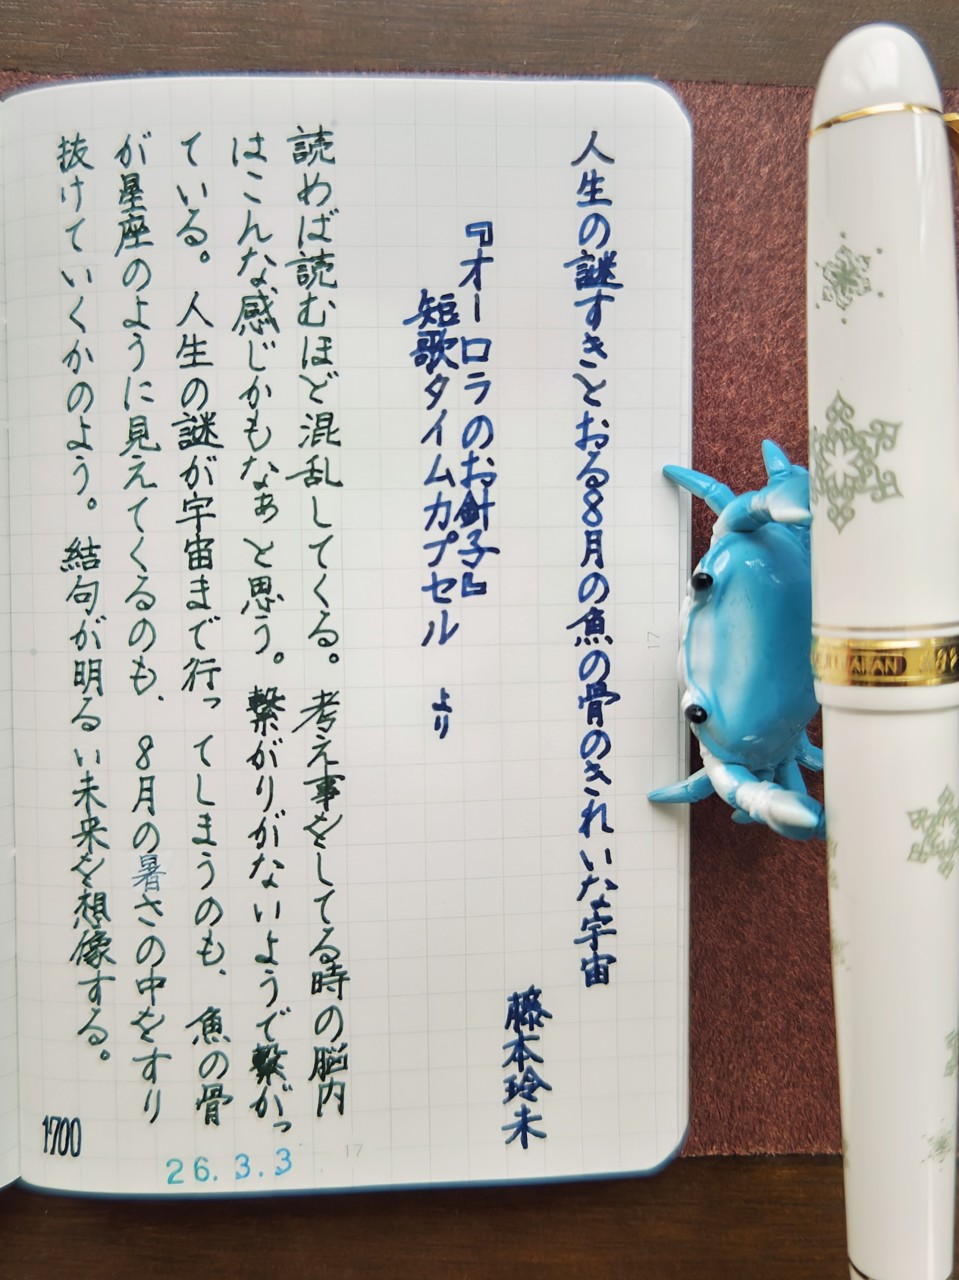 人生の謎すきとおる8月の魚の骨のきれいな宇宙
藤本玲未
『オーロラのお針子』
短歌タイムカプセル より
読めば読むほど混乱してくる。考え事をしてる時の脳内
はこんな感じかもなぁと思う。繋がりがないようで繋がっ
ている。人生の謎が宇宙まで行ってしまうのも、魚の骨
が星座のように見えてくるのも、8月の暑さの中をすり
抜けていくかのよう。結句が明るい未来を想像する。
1700
26.3.3
17
17
JAPAN